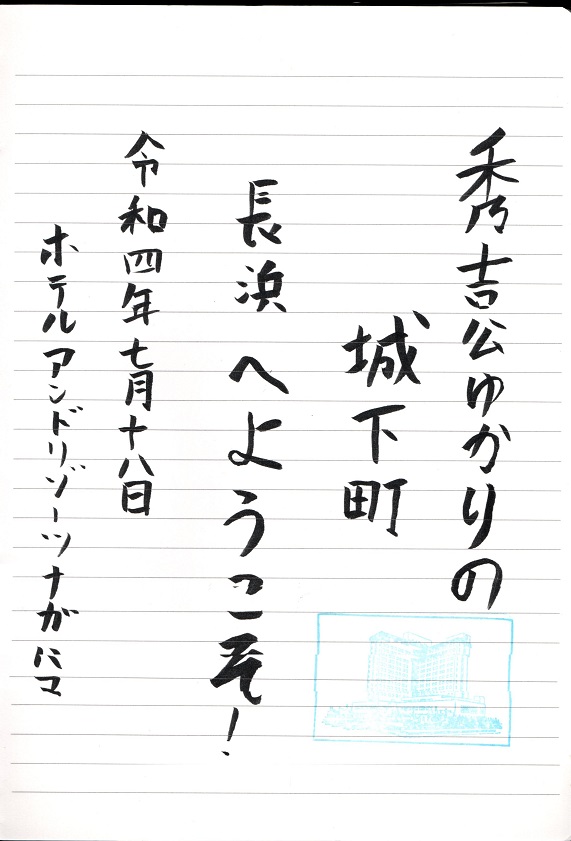 秀吉公ゆかりの
城下町
長浜へようこそ!
令和四年七月十八日
ホテルアンドリゾーツナガハマ